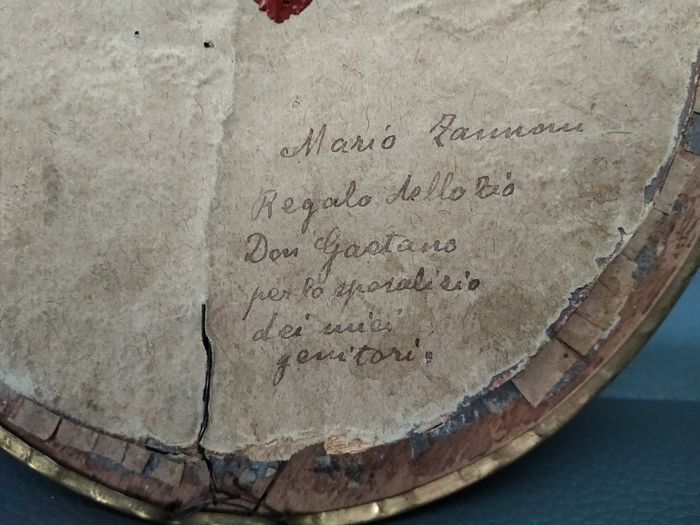 Mario Zannoni
Regalo dello Zio
Don Gaetano
per lo sposalizio
dei miei
genitori.